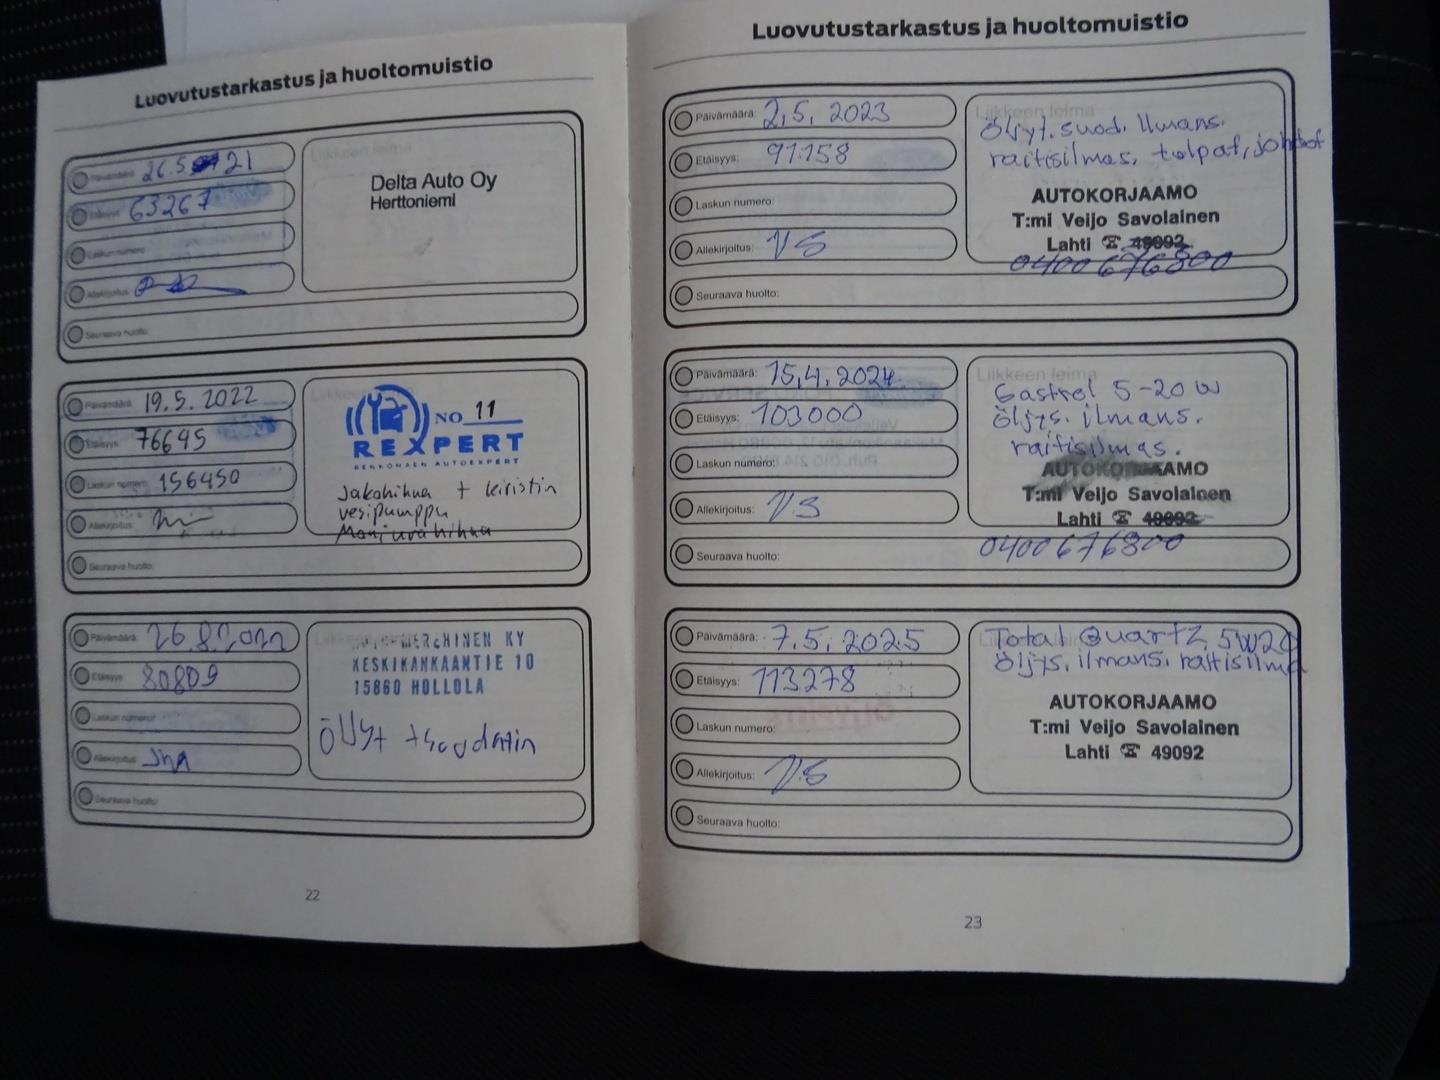 Luovutustarkastus ja huoltomuistio
Päivämäärä: 26.5. 21
Etäisyys: 63267
Laskun numero:
Allekirjoitus:
Seuraava huolto:
Liikkeen leima
Delta Auto Oy
Herttoniemi
Päivämäärä: 19.5.2022
Etäisyys: 76645
Laskun numero: 156450
Allekirjoitus:
Seuraava huolto:
NO 11
REXPERT
RENKOMÄEN AUTOEXPERT
Jakohihna + kiristin
vesipumppu
Moniurahihna
Päivämäärä: 26.8.2022
Etäisyys: 80809
Laskun numero:
Allekirjoitus:
Seuraava huolto:
KY
KESKIKANKAANTIE 10
15860 HOLLOLA
Öljyt + suodatin
22
Luovutustarkastus ja huoltomuistio
Päivämäärä: 2.5. 2023
Etäisyys: 91158
Laskun numero:
Allekirjoitus: VS
Seuraava huolto:
Liikkeen leima
Öljyt. suod. Ilmans.
raitisilmas, tulpat, johdot
AUTOKORJAAMO
T:mi Veijo Savolainen
Lahti ☎ 49092
0400 676800
Päivämäärä: 15.4. 2024
Etäisyys: 103000
Laskun numero:
Allekirjoitus: VS
Seuraava huolto:
Liikkeen leima
Castrol 5-20 W
öljys. ilmans.
raitisilmas.
AUTOKORJAAMO
T:mi Veijo Savolainen
Lahti ☎ 49092
0400 676800
Päivämäärä: 7.5. 2025
Etäisyys: 113278
Laskun numero:
Allekirjoitus: VS
Seuraava huolto:
Total Quartz 5W20
öljys. ilmans. raitisilma
AUTOKORJAAMO
T:mi Veijo Savolainen
Lahti ☎ 49092
23